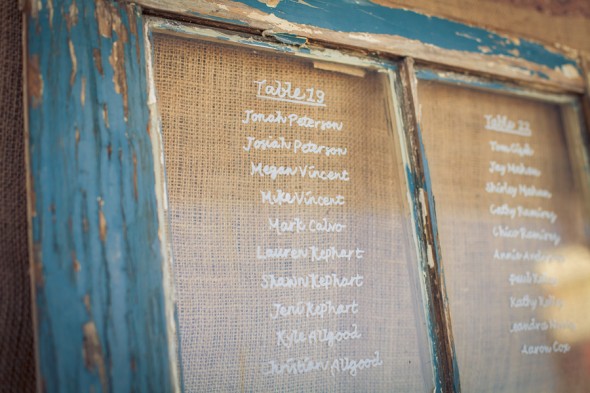 Table 13
Jonah Peterson
Josiah Peterson
Megan Vincent
Mike Vincent
Mark Calvo
Lauren Kephart
Shawn Kephart
Jeni Kephart
Kyle Allgood
Christian Allgood
Table
Tom
Jay Mahan
Shirley Mahan
Cathy Ramirez
Chico Ramirez
Annie
Paul
Kathy
Aaron Cox